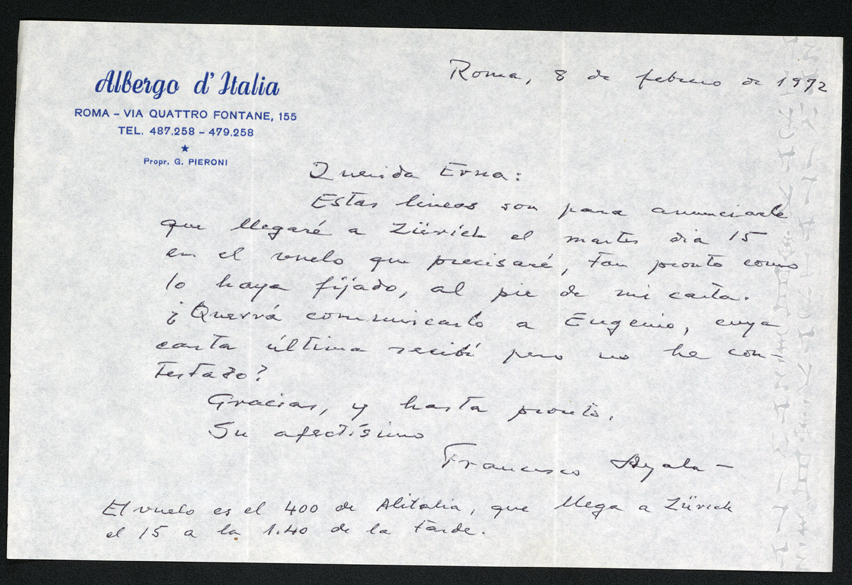 Albergo d'Italia
ROMA – VIA QUATTRO FONTANE, 155
TEL. 487.258 – 479.258
★
Propr. G. PIERONI
Roma, 8 de febrero de 1972
Querida Erna:
Estas líneas son para anunciarle
que llegaré a Zürich el martes día 15
en el vuelo que precisaré, tan pronto como
lo haya fijado, al pie de mi carta.
¿Querrá comunicarlo a Eugenio, cuya
carta última recibí pero no he con-
testado?
Gracias, y hasta pronto.
Su afectísimo
Francisco Ayala –
El vuelo es el 400 de Alitalia, que llega a Zürich
el 15 a la 1.40 de la tarde.